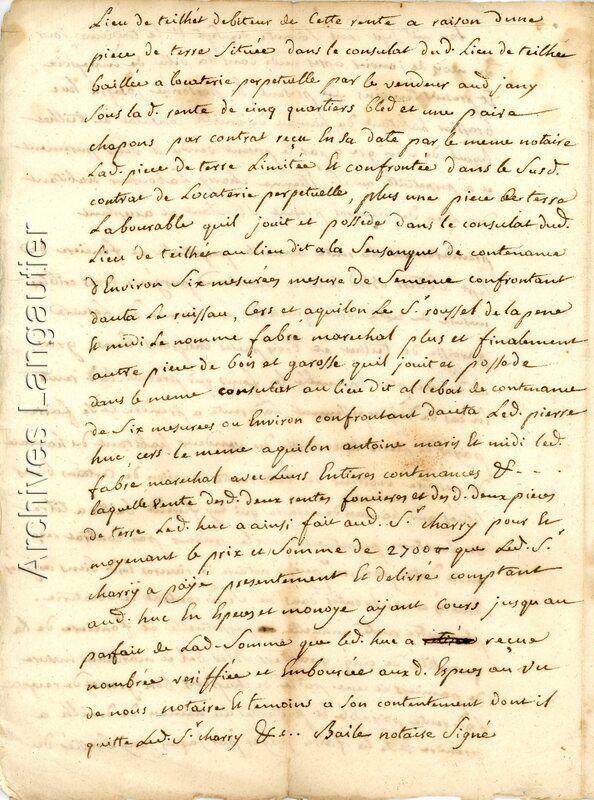 Lieu de teilhét debiteur de Cette rente a raison dune
piece de terre Située dans le consulat dud. Lieu de teilhét
baillée a locaterie perpetuelle par le vendeur aud jany
sous lad. rente de cinq quartiers bled et une paire
chapons par contrat reçu En sa date par le meme notaire
Lad. piece de terre Limitée Et confrontée dans le Susd.
contrat de Locaterie perpetuelle, plus une piece de terre
Labourable quil jouit et possède dans le consulat dud.
Lieu de teilhét au lieu dit a la de contenance
d'Environ Six mesurées mesure de Semence confrontant
dauta Le ruissau, Cers et aquilon Le Sr. roussel de lapene
Et midi Le nomme fabré marechal plus et finalement
autre piece de bois et garosse quil jouit et possede
dans le meme consulat au lieu dit al lebat de contenance
de Six mesurées ou Environ confrontant dauta Led. pierre
huc cers le meme aquilon antoine maris Et midi led.
fabré marechal avec Leurs Entieres contenances &. - -
laquelle vente desd. deux rentes foncieres et desd. deux pieces
de terre Led. huc a ainsi fait aud. Sr. charry pour Et
moyenant le prix et Somme de 2700ᵗᵗ que Led. Sr.
charry a payé presentement Et delivré comptant
aud. huc En Especes et monoye ayant cours jusquau
parfait de Lad. Somme que led. huc a reçue
nombrée veriffiée et Emboursée auxd. Especes au vu
de nous notaire Et temoins a son contentement dont il
quitte Led. Sr. charry &c.. Baile notaire Signé
Archives Langautier